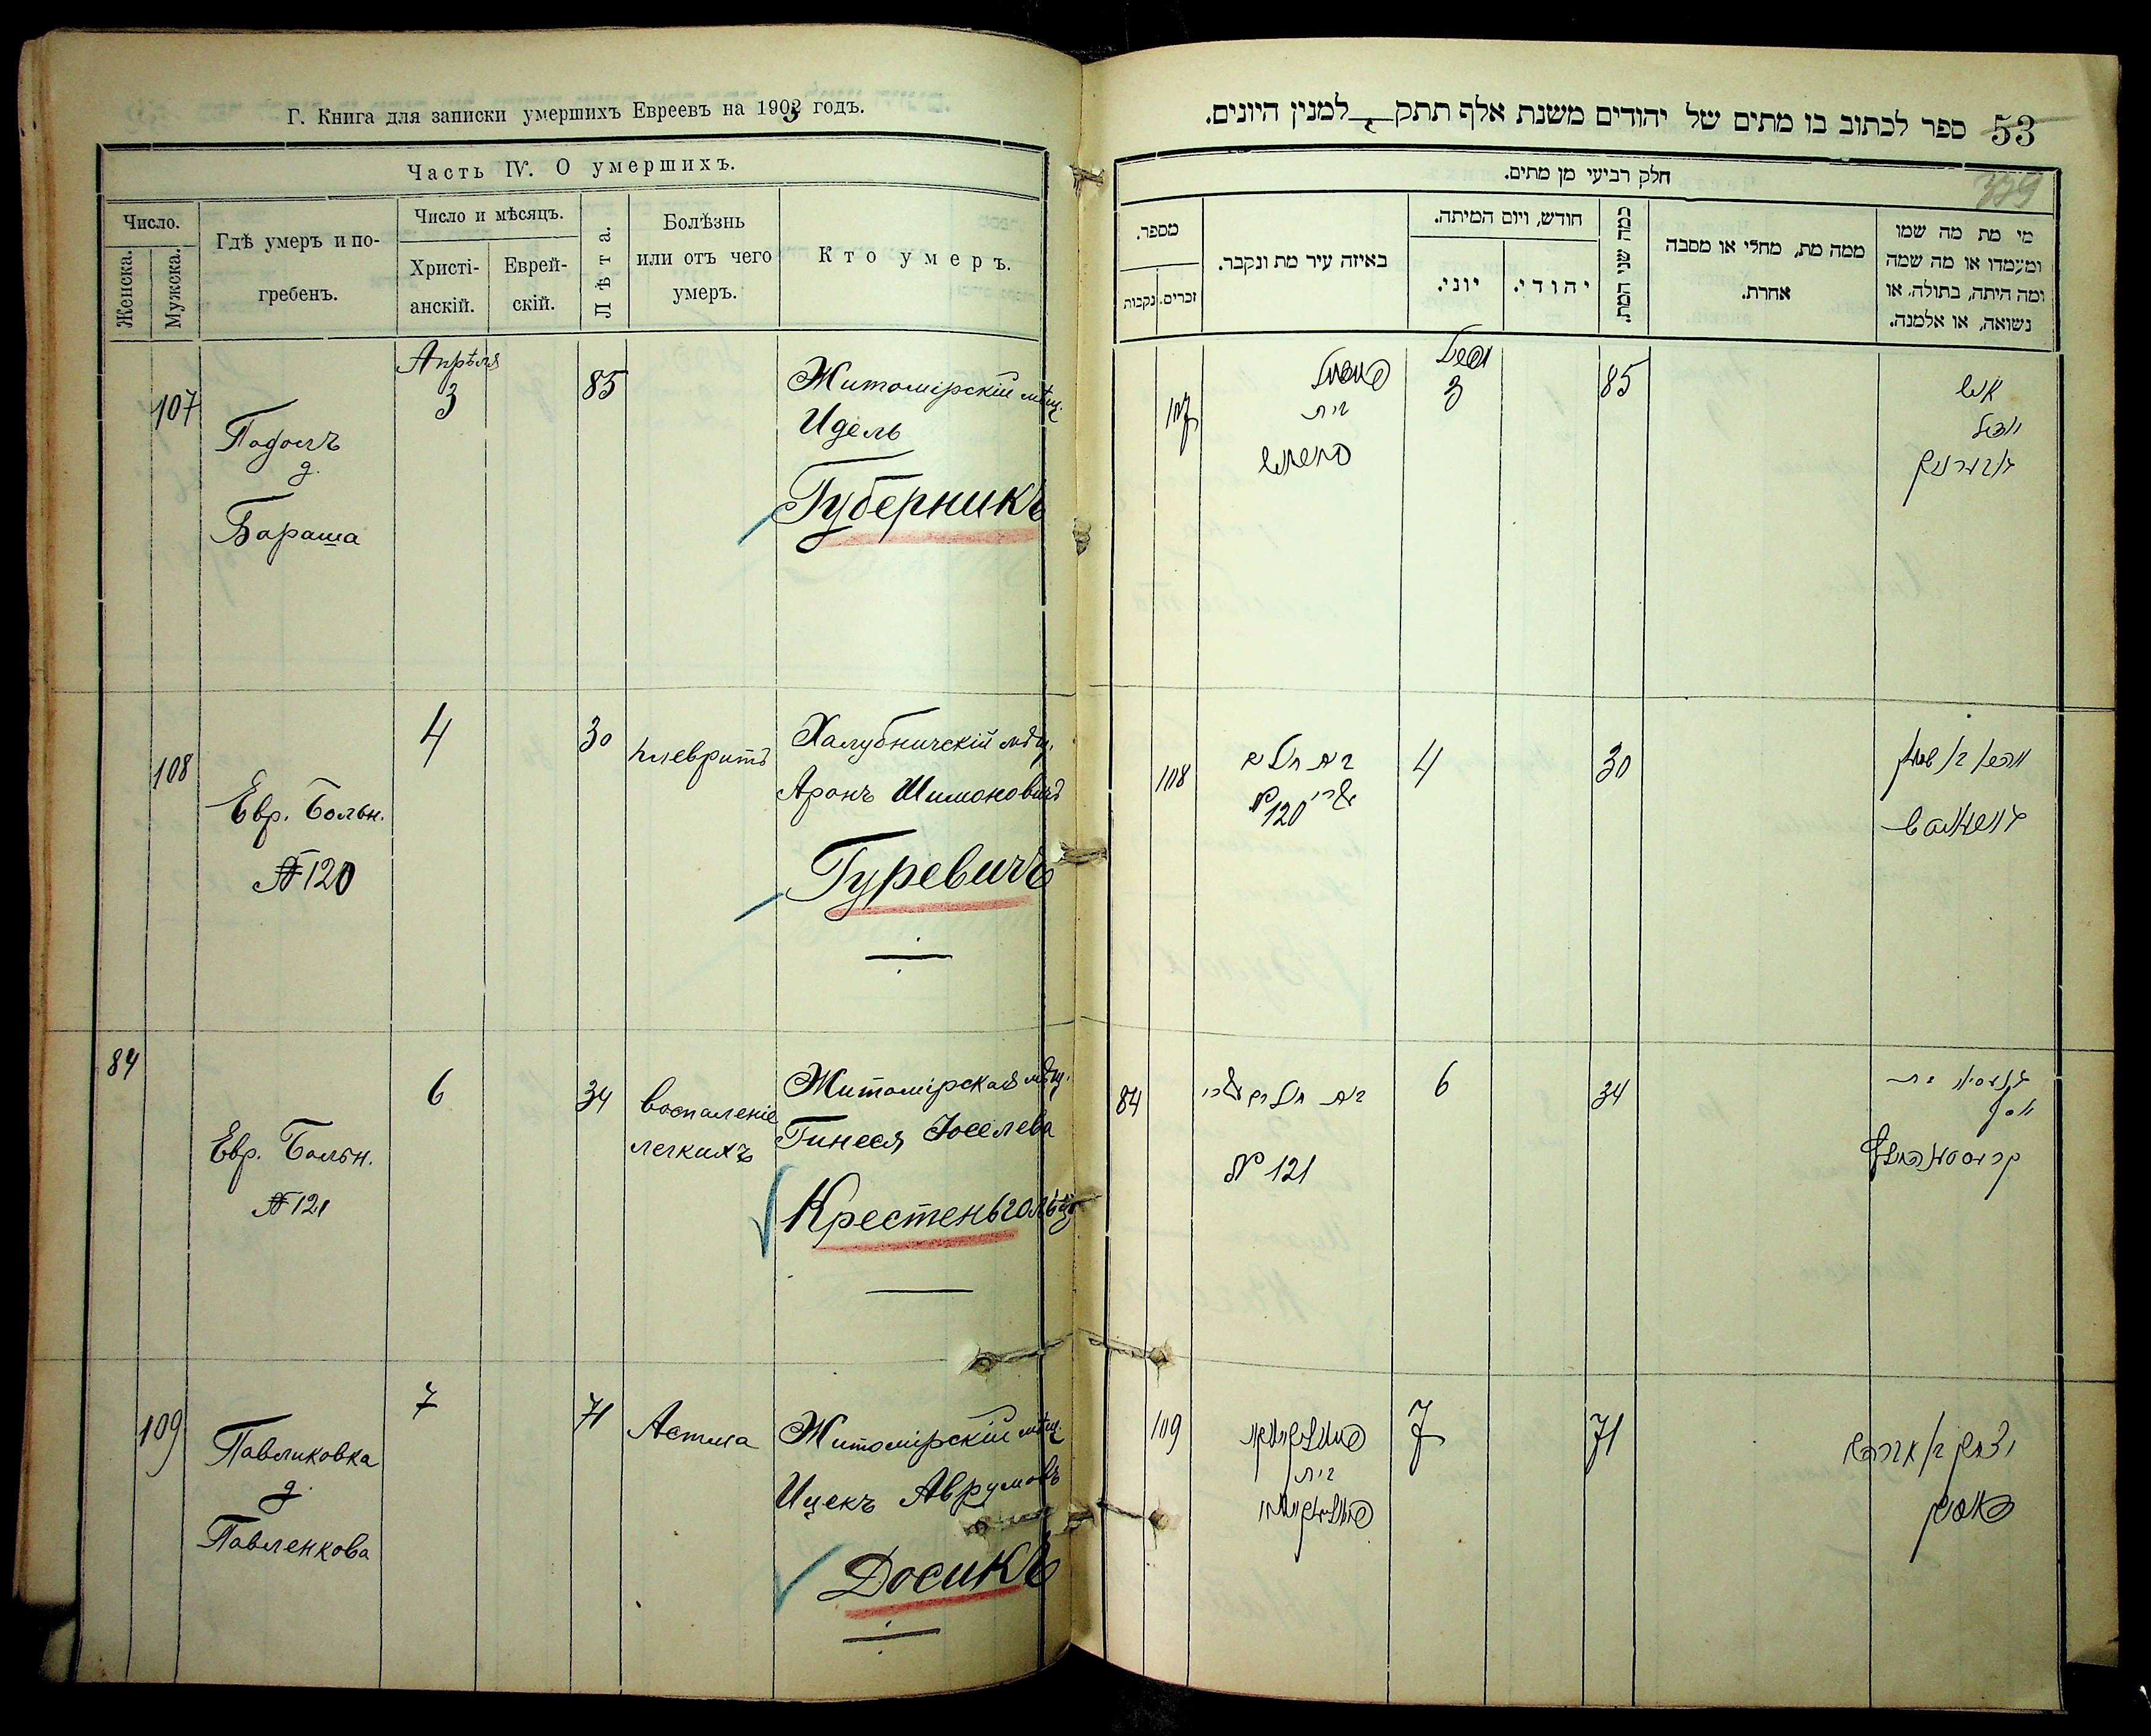 Г. Книга для записки умершихъ Евреевъ на 1903 годъ.
Часть IV. О умершихъ.
Число.
Женска.
Мужска.
Гдѣ умеръ и по-
гребенъ.
Число и мѣсяцъ.
Христі-
анскій.
Еврей-
скій.
Лѣта.
Болѣзнь
или отъ чего
умеръ.
Кто умеръ.
107
Подолъ
д.
Бараша
Апрѣля
3
85
Житомірскій мѣщ.
Идель
Губерникъ
108
Евр. Больн.
№ 120
4
30
плевритъ
Халубничскій мѣщ.
Аронъ Шимоновичъ
Гуревичъ
84
Евр. Больн.
№ 121
6
34
воспаленіе
легкихъ
Житомірская мѣщ.
Гинеся Юселева
Крестеньгольцъ
109
Павликовка
д.
Павленкова
7
71
Астма
Житомірскій мѣщ.
Ицекъ Аврумовъ
Досикъ
53 ספר לכתוב בו מתים של יהודים משנת אלף תתק למנין היונים.
339
חלק רביעי מן מתים.
מספר.
נקבות
זכרים.
באיזה עיר מת ונקבר.
חודש, ויום המיתה.
יוני.
יהודי.
כמה שני המת.
ממה מת, מחלי או מסבה
אחרת.
מי מת מה שמו
ומעמדו או מה שמה
ומה היתה, בתולה, או
נשואה, או אלמנה.
107
בית
3
85
108
№ 120
4
30
84
№ 121
6
34
109
בית
7
71